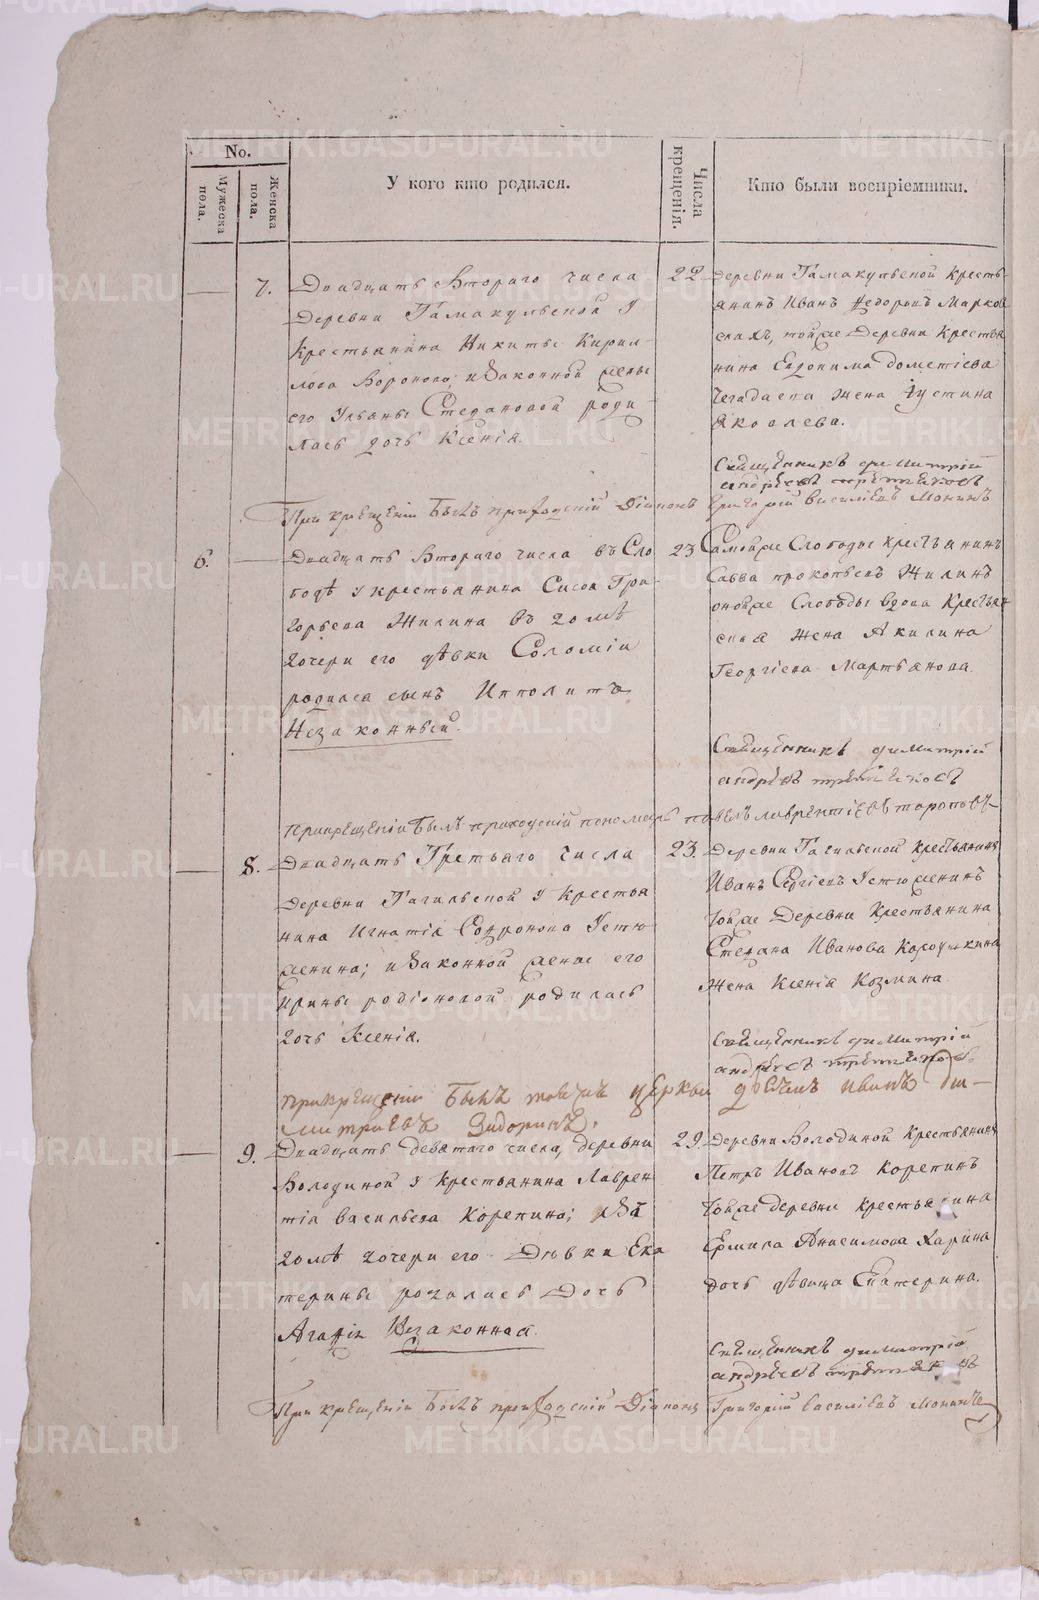 No.
Мужеска пола.
Женска пола.
У кого кто родился.
Числа крещенія.
Кто были воспріемники.
7.
Двадцать Втораго числа
деревни Гамакульской у
крестьянина Никиты Кирил-
лова Воронова; и Законной жены
его Ульяны Стефановой роди
лась дочь Ксенія.
22
деревни Гамакульской кресть-
янинъ Иванъ Федоровъ
тойже деревни крестья
нина Евдокима Дометіева
жена Іустина
Яковлева.
Священникъ димитрій
андреевъ
При крещеніи Былъ приходскій Діаконъ Григорій василіевъ Мокинъ
6.
Двадцать Втораго числа въ Сло
бодѣ у крестьянина Сисоя Гри
горьева Жилина въ домѣ
дочери его дѣвки Соломіи
родился сынъ Ипполитъ
Незаконный.
23
Самойже Слободы крестьянинъ
Савва прокопьевъ Жилинъ
онойже Слободы вдова Крестьян
ская жена Акилина
Георгіева Мартьянова.
Священникъ димитрій
андреевъ
при крещеніи былъ приходскій пономарь павелъ лаврентіевъ
8.
Двадцать Третьяго числа
деревни Гагильской у Крестья
нина Игнатія Софронова Устю
женина; и Законной жены его
Ирины родіоновой родилась
дочь Ксенія.
23.
деревни Гагильской крестьянинъ
Иванъ Сергіевъ Устюженинъ
тойже Деревни Крестьянина
Стефана Иванова
Жена Ксенія Козмина.
Священникъ димитрій
андреевъ
при крещеніи Былъ тойже церкви дьячекъ иванъ Ди-
митріевъ
9.
Двадцать девятаго числа, деревни
Володиной у Крестьянина Лаврен
тія васильева Корепина; въ
домѣ дочери его Дѣвки Ека
терины родилась Дочь
Агафія Незаконная.
29.
Деревни Володиной Крестьянинъ
Петръ Ивановъ Корепинъ
тойже деревни крестьянина
Ермила Анисимова Харина
дочь дѣвица Екатерина.
Священникъ димитрій
андреевъ
При крещеніи Былъ приходскій Діаконъ Григорій василіевъ Мокинъ
METRIKI.GASO-URAL.RU